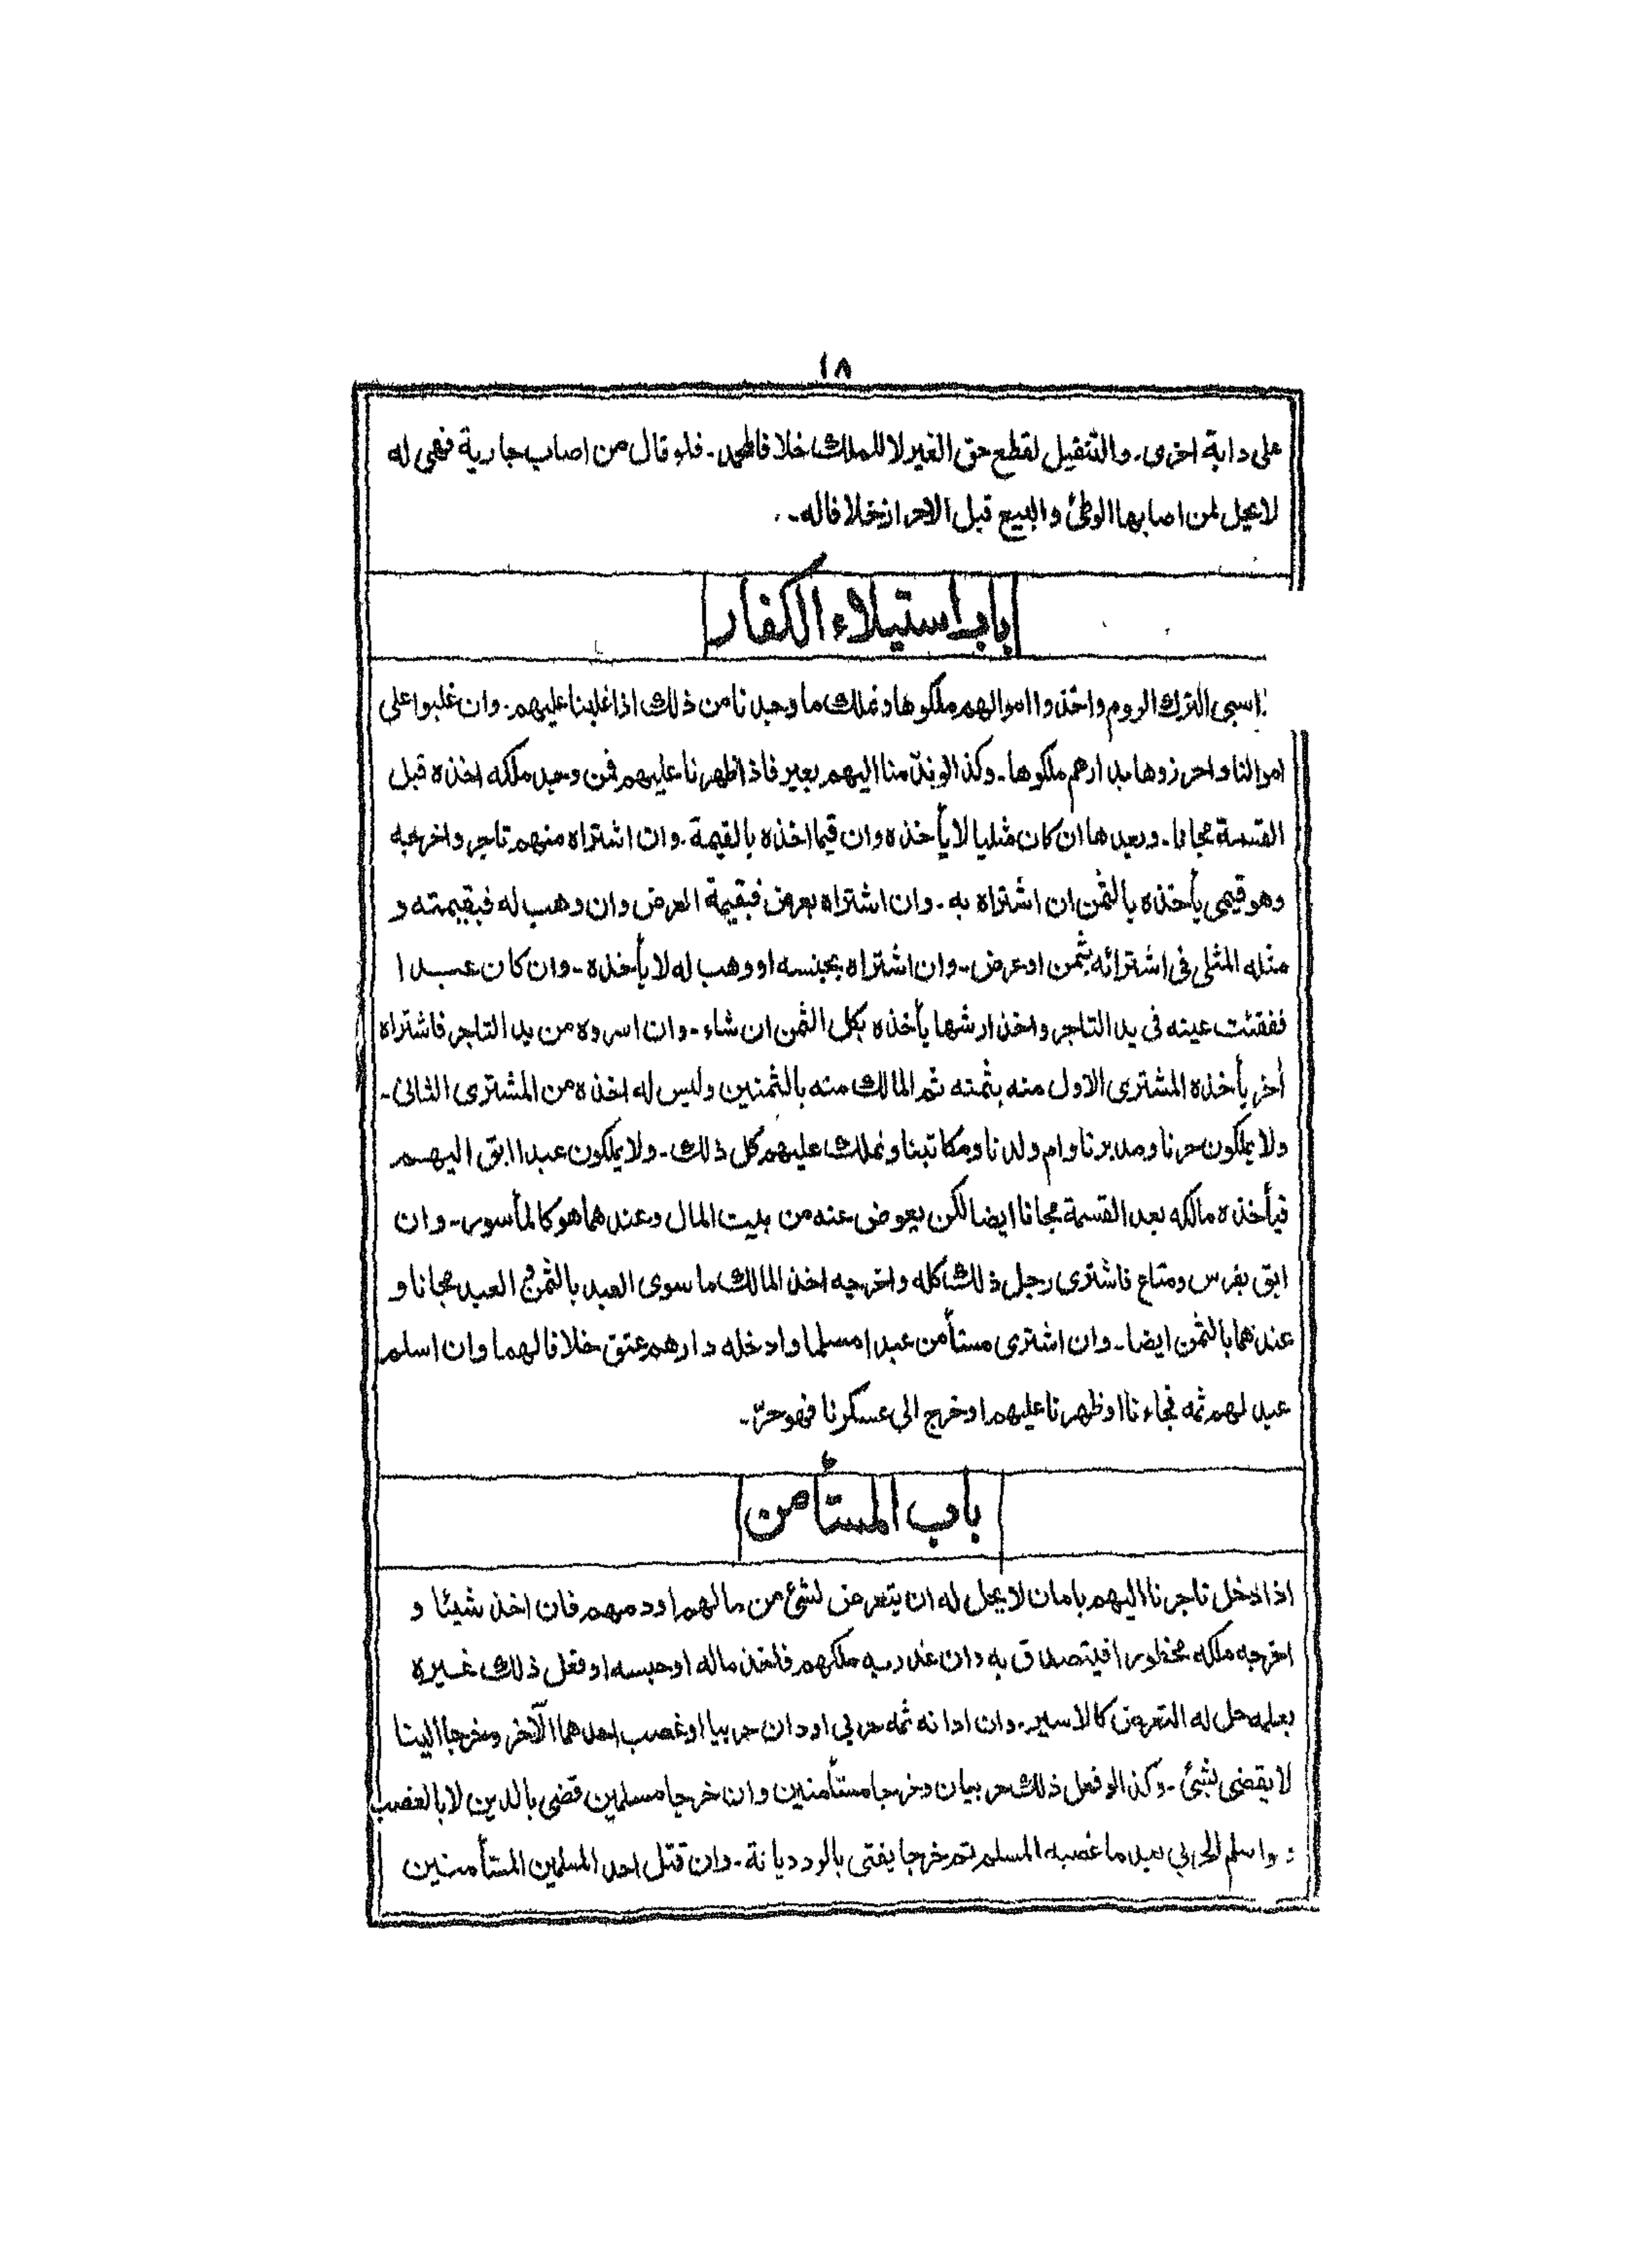 ١٨
على دابة اخرى۔ والتنفيل لقطع حق الغير لا للملك خلافا لمحمد۔ فلو قال من اصاب جارية فهى له
لا يحل لمن اصابها الوطئ والبيع قبل الاحراز خلافا له۔
باب استيلاء الكفار
سبى الترك الروم واخذوا اموالهم ملكوها ونملك ما وجدنا من ذلك اذا غلبنا عليهم۔ وان غلبوا على
اموالنا واحرزوها بدارهم ملكوها۔ وكذا لو ندّ منا اليهم بعير فاذا ظهرنا عليهم فمن وجد ملكه اخذه قبل
القسمة مجانا۔ وبعدها ان كان مثليا لا يأخذه وان قيما اخذه بالقيمة۔ وان اشتراه منهم تاجر واخرجه
وهو قيمى يأخذه بالثمن ان اشتراه به۔ وان اشتراه بعرض فبقيمة العرض وان وهب له فبقيمته و
مثله المثلى فى اشترائه بثمن او عرض۔ وان اشتراه بجنسه او وهب له لا يأخذه۔ وان كان عبدا
ففقئت عينه فى يد التاجر واخذ ارشها يأخذه بكل الثمن ان شاء۔ وان اسروه من يد التاجر فاشتراه
أخر يأخذه المشترى الاول منه بثمنه ثم المالك منه بالثمنين وليس له اخذه من المشترى الثانى۔
ولا يملكون حرنا ومدبرنا وام ولدنا ومكاتبنا ونملك عليهم كل ذلك۔ ولا يملكون عبدا ابق اليهم
فيأخذه مالكه بعد القسمة مجانا ايضا لكن يعوض عنه من بيت المال وعندهما هو كالمأسور۔ وان
ابق بفرس ومتاع فاشترى رجل ذلك كله واخرجه اخذ المالك ما سوى العبد بالثمن و العبد مجانا و
عندهما بالثمن ايضا۔ وان اشترى مستأمن عبدا مسلما وادخله دارهم عتق خلافا لهما وان اسلم
عبد لهم ثمه فجاءنا او ظهرنا عليهم او خرج الى عسكرنا فهو حرّ۔
باب المستأمن
اذا دخل تاجرنا اليهم بامان لا يحل له ان يتعرض لشئ من مالهم او دمهم فان اخذ شيئا و
اخرجه ملكه محظورا فيتصدق به وان غدر به ملكهم فاخذ ماله او حبسه او فعل ذلك غيره
بعلمه حل له التعرض كالاسير۔ وان ادانه ثمه حربي او دان حربيا او غصب احدهما الآخر وخرجا الينا
لا يقضى بشئ۔ وكذا لو فعل ذلك حربيان وخرجا مستأمنين وان خرجا مسلمين قضى بالدين لا بالغصب
واسلم الحربي بعد ما غصبه المسلم ثم خرجا يفتى بالرد ديانة۔ وان قتل احد المسلمين المستأمنين